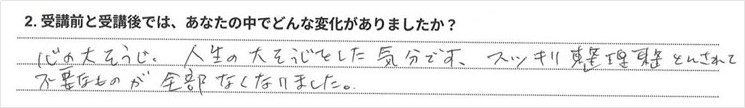 2. 受講前と受講後では、あなたの中でどんな変化がありましたか？
心の大そうじ、人生の大そうじをした気分です、スッキリ整理整とんされて
不要なものが全部なくなりました。